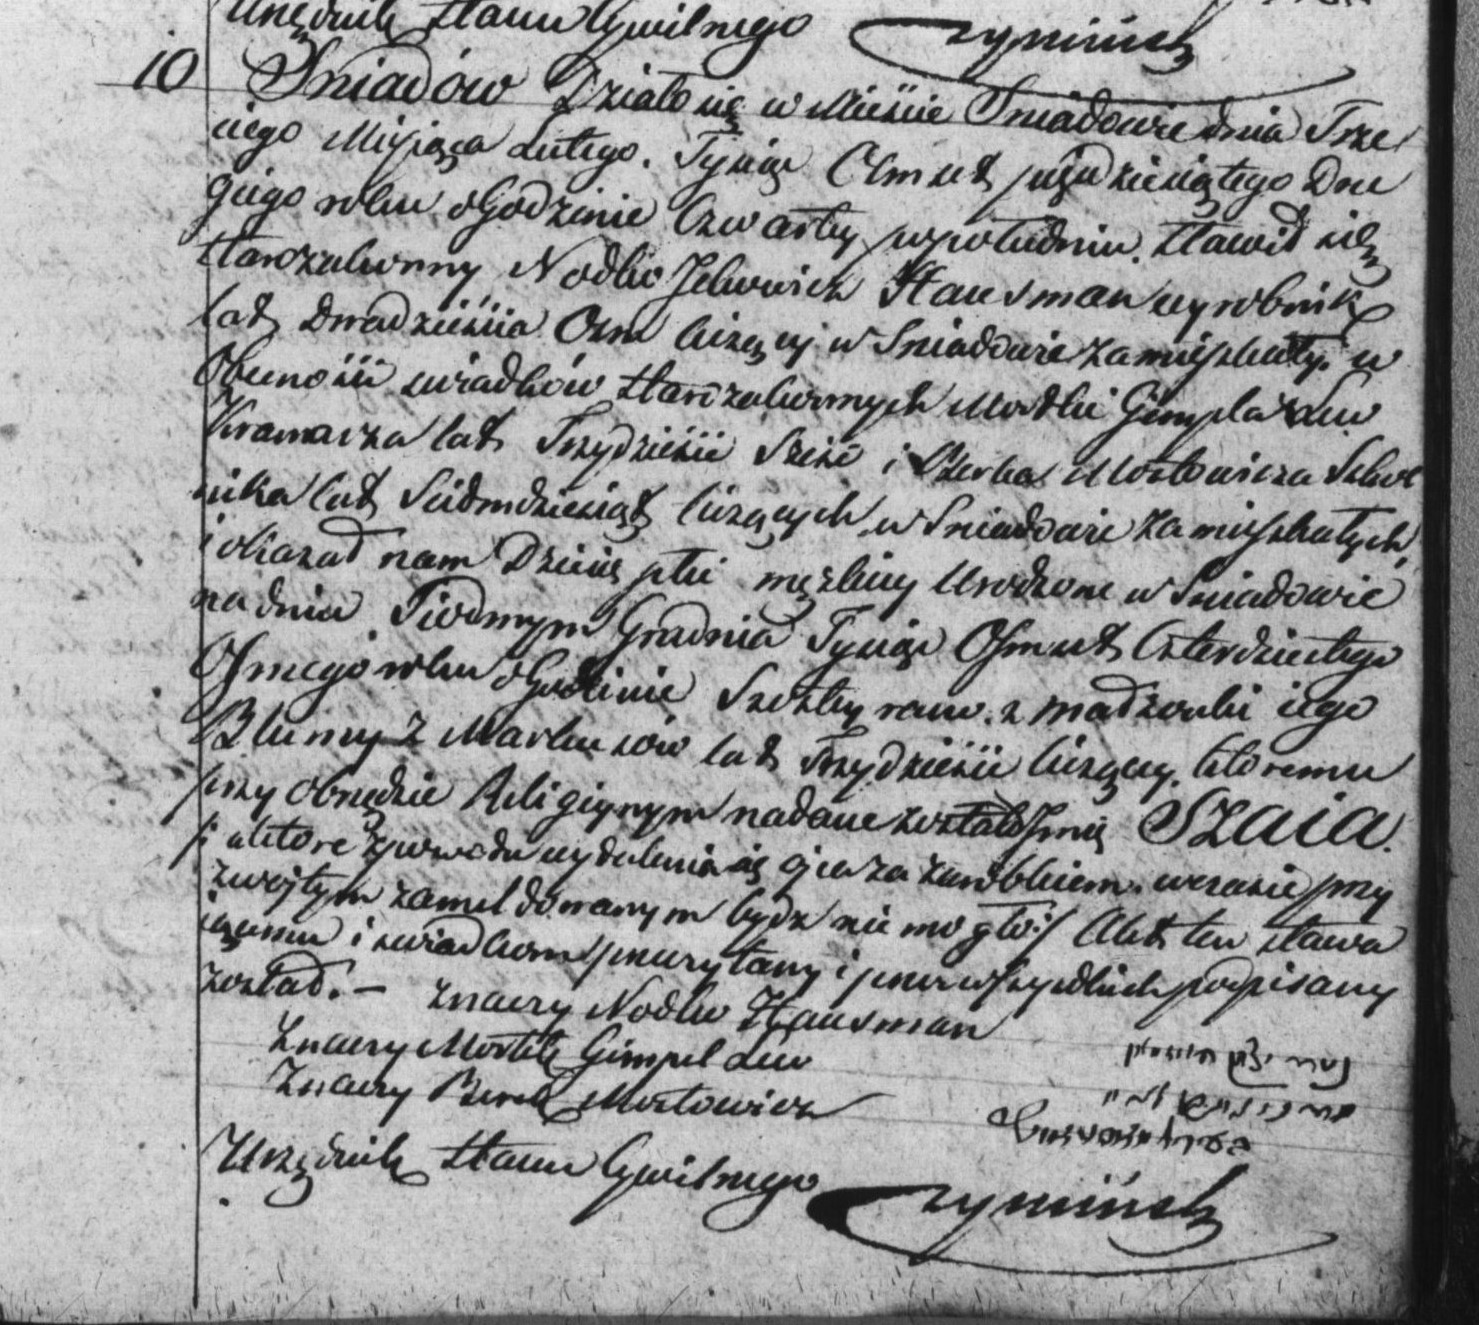 Urzędnik Stanu Cywilnego
10 Sniadów Działo się w Mieście Sniadowie dnia Trze
ciego Miesiąca Lutego. Tysiąc Osmset pięćdziesiątego Dru
giego roku o Godzinie Czwartey popołudniu. Stawił się
Starozakonny Nodko Hausman wyrobnik
lat Dwadzieścia Osm liczący w Sniadowie zamieszkały. w
Obecności świadków Starozakonnych Mordki Gimpla Lew
Kramarza lat Trzydzieści Sześć i Berka Mostowicza Szkol
nika lat Siedmdziesiąt liczących, w Sniadowie zamieszkałych,
i okazał nam Dziecię płci męzkiey Urodzone w Sniadowie
na dniu Siodmym Grudnia Tysiąc Osmset Czterdziestego
Osmego roku o Godzinie Szóstey rano. z małżonki iego
Blumy z Markusów lat Trzydzieści liczącey. któremu
przy obrzędzie Religijnym nadane zostało Imię Szaia.
/: a które z powodu wydalenia się ojca za zarobkiem. w czasie przy
zwoitym zameldowanym bydź nie mogło :/ Akt ten stawa
iącemu i świadkom przeczytany i przez wszystkich podpisany
został. — znaczy Nodko Hausman
Znaczy Mortek Gimpel Lew
Znaczy Berek Mostowicz
Urzędnik Stanu Cywilnego